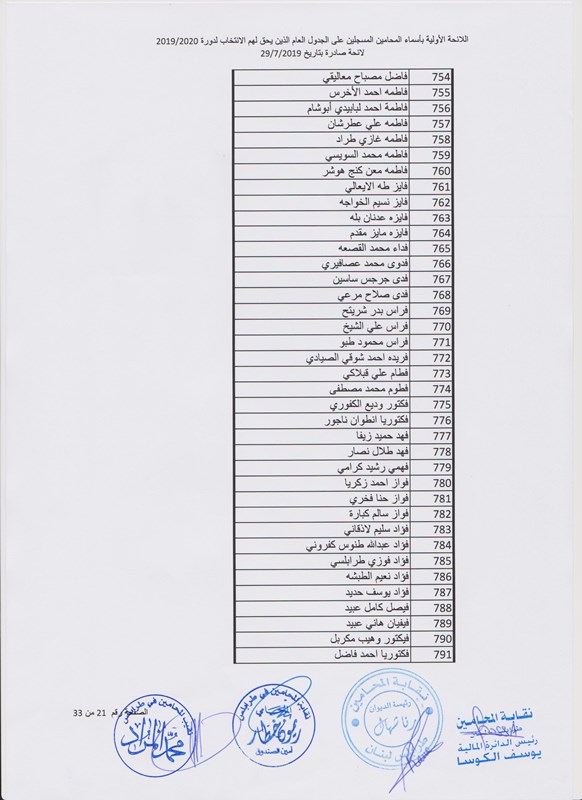 اللائحة الأولية بأسماء المحامين المسجلين على الجدول العام الذين يحق لهم الانتخاب لدورة 2019/2020
لائحة صادرة بتاريخ 29/7/2019
754 فاضل مصباح معاليقي
755 فاطمه احمد الأخرس
756 فاطمة احمد لبابيدي أبوشام
757 فاطمه علي عطرشان
758 فاطمه غازي طراد
759 فاطمه محمد السويسي
760 فاطمه معن كنج هوشر
761 فايز طه الايعالي
762 فايز نسيم الخواجه
763 فايزه عدنان بله
764 فايزه مايز مقدم
765 فداء محمد القصعه
766 فدوى محمد عصافيري
767 فدى جرجس ساسين
768 فدى صلاح مرعي
769 فراس بدر شريتح
770 فراس علي الشيخ
771 فراس محمود طبو
772 فريده احمد شوقي الصيادي
773 فطام علي قبلاكي
774 فطوم محمد مصطفى
775 فكتور وديع الكفوري
776 فكتوريا انطوان ناجور
777 فهد حميد زيفا
778 فهد طلال نصار
779 فهمي رشيد كرامي
780 فواز احمد زكريا
781 فواز حنا فخري
782 فواز سالم كبارة
783 فؤاد سليم لاذقاني
784 فؤاد عبدالله طنوس كفروني
785 فؤاد فوزي طرابلسي
786 فؤاد نعيم الطبشه
787 فؤاد يوسف حديد
788 فيصل كامل عبيد
789 فيفيان هاني عبيد
790 فيكتور وهيب مكربل
791 فكتوريا احمد فاضل
نقابة المحامين
رئيس الدائرة المالية
يوسف الكوسا
نقابة المحامين
رئيسة الديوان
نقابة المحامين في طرابلس
أمين الصندوق
نقيب المحامين في طرابلس
محمد المراد
الصفحة رقم 21 من 33